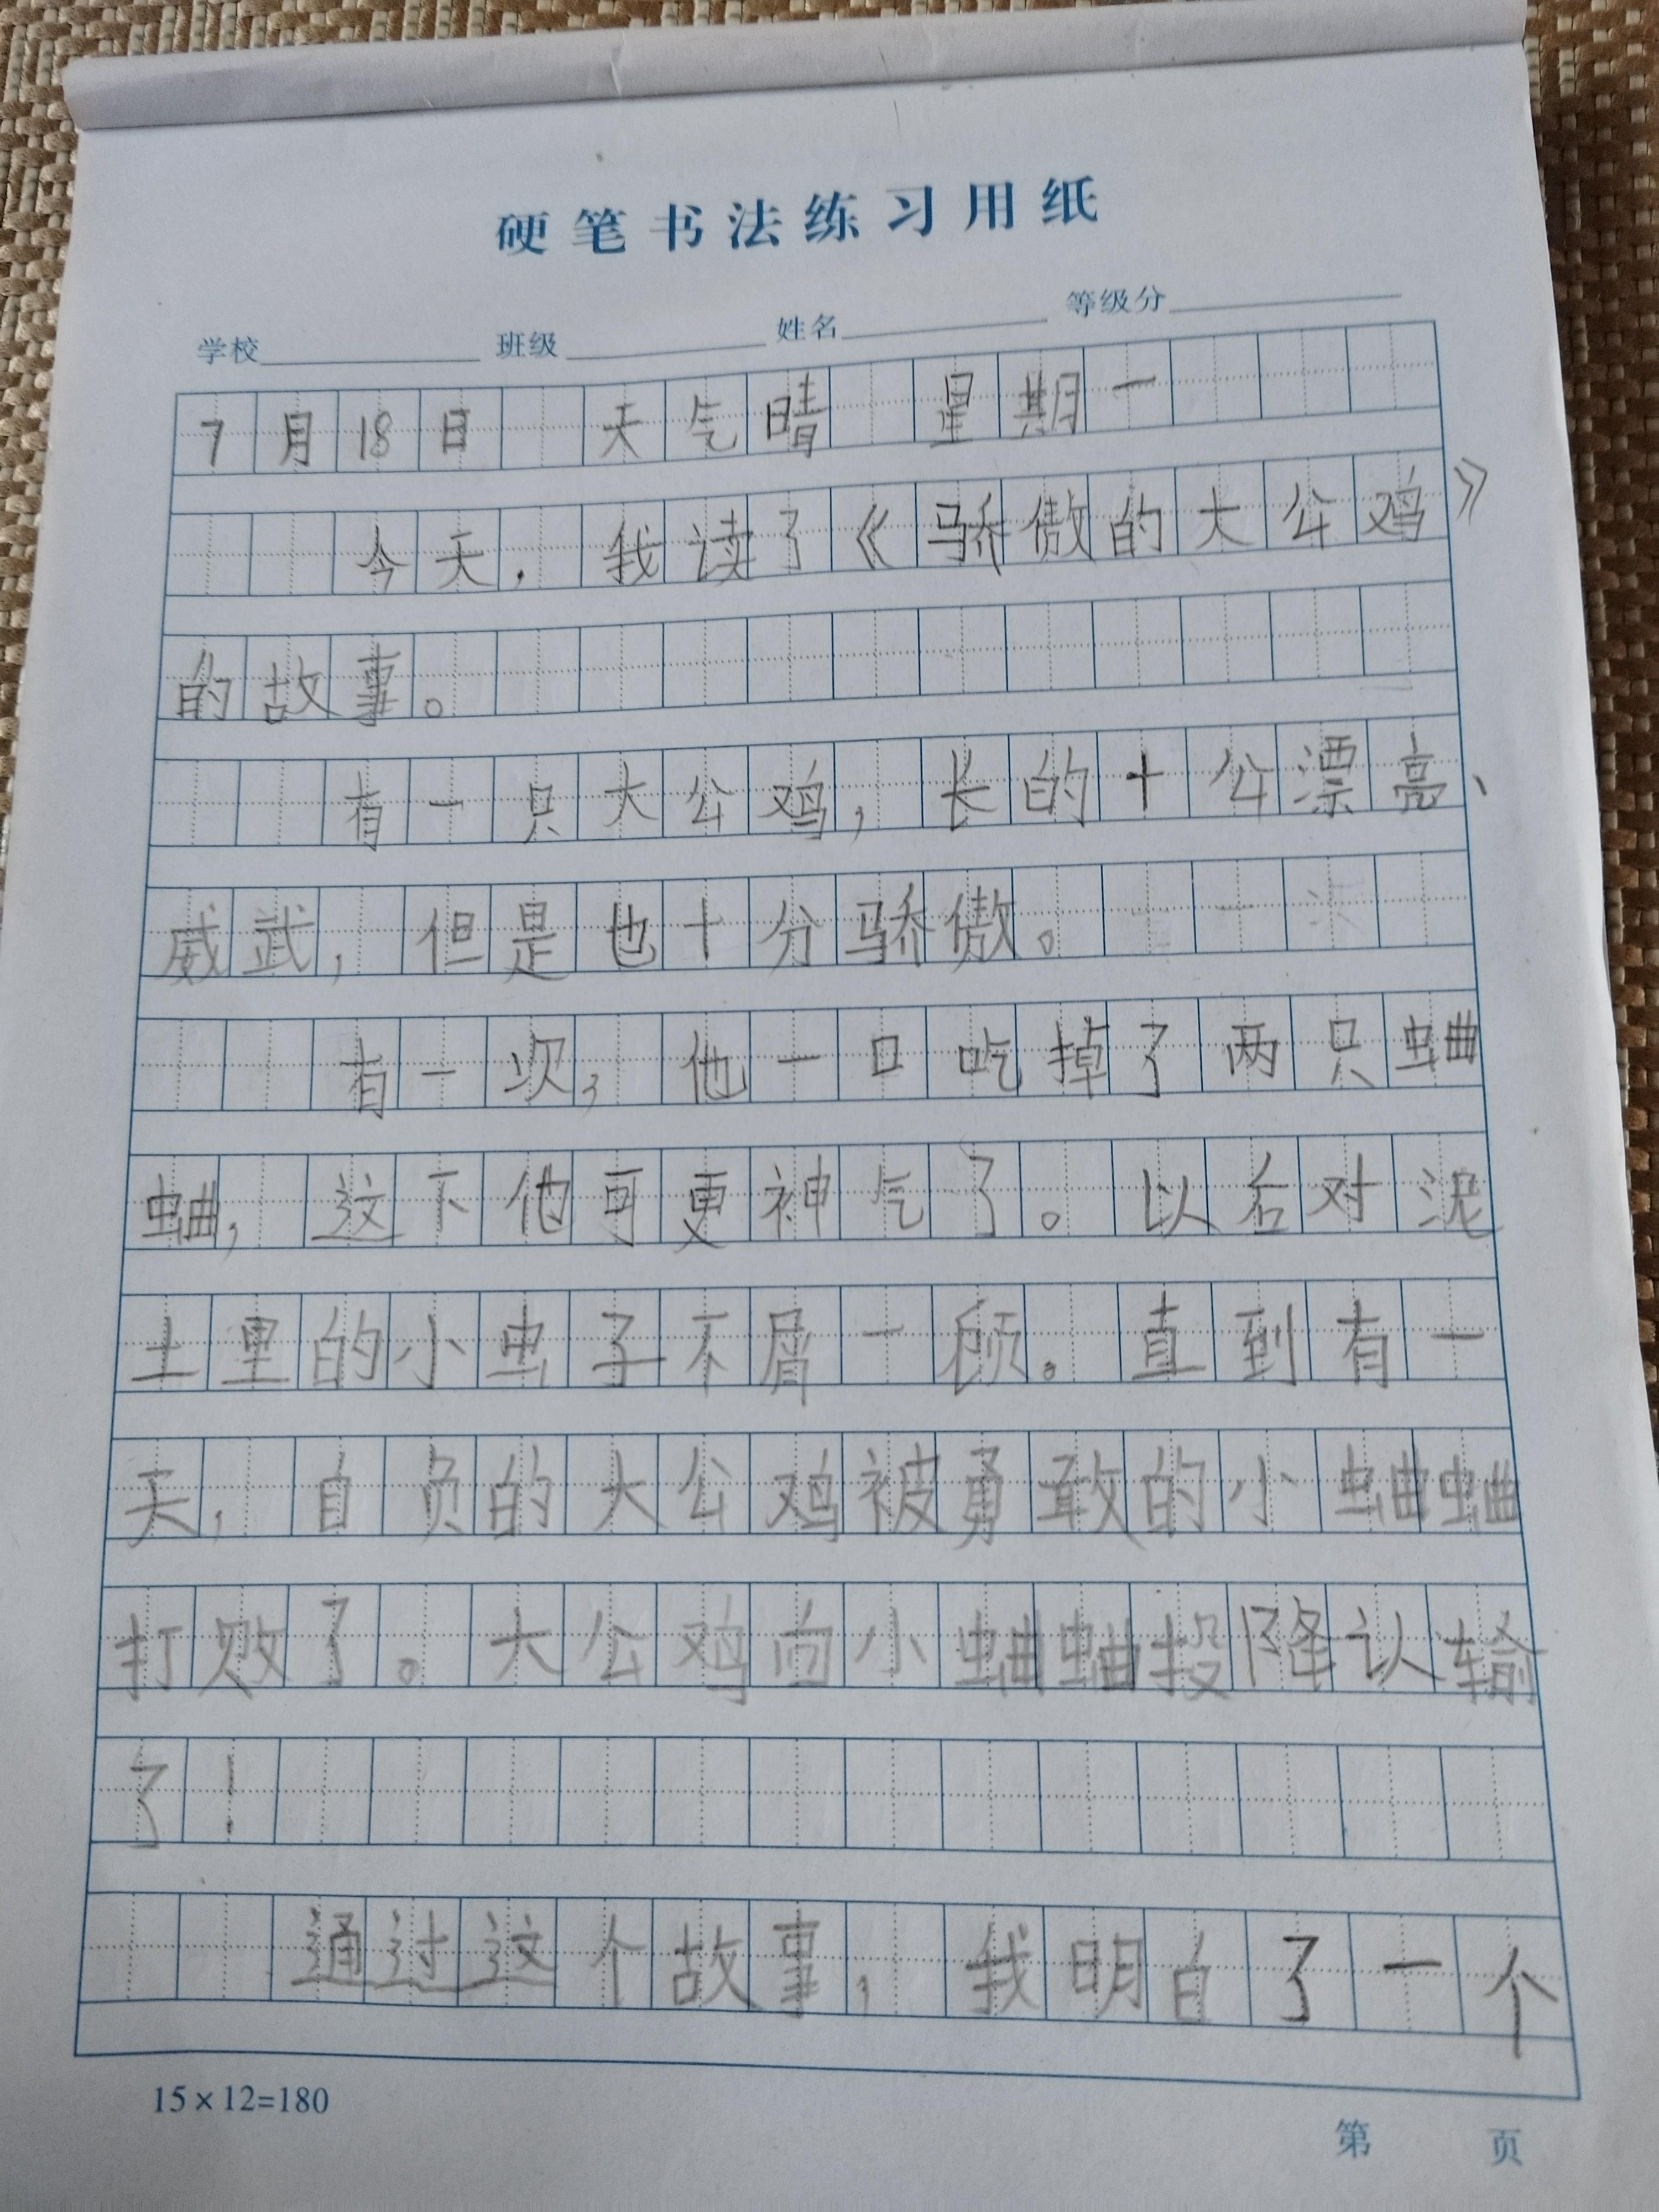 硬笔书法练习用纸
学校 班级 姓名 等级分
7月18日 天气晴 星期一
今天，我读了《骄傲的大公鸡》
的故事。
有一只大公鸡，长的十公漂亮、
威武，但是也十分骄傲。
有一次，他一口吃掉了两只蛐
蛐，这下他可更神气了。以后对泥
土里的小虫子不屑一顾。直到有一
天，自负的大公鸡被勇敢的小蛐蛐
打败了。大公鸡向小蛐蛐投降认输
了！
通过这个故事，我明白了一个
15×12=180
第 页